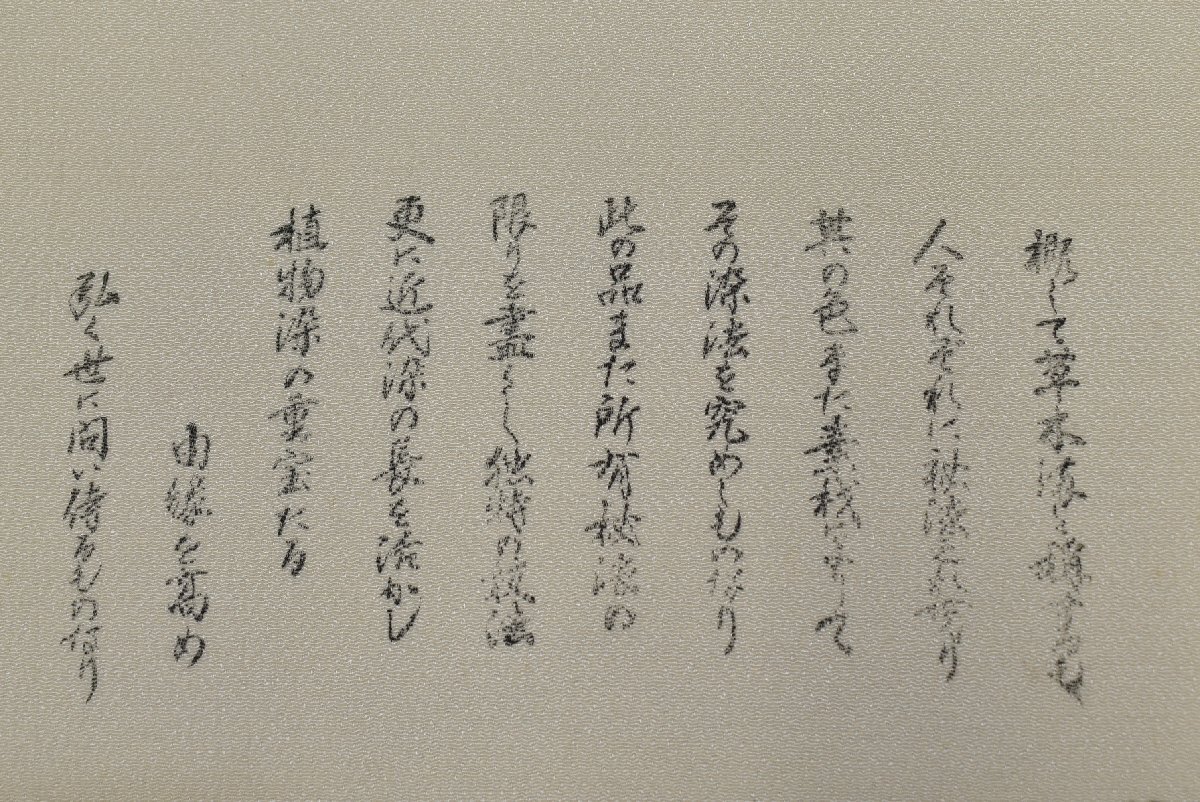 概して草木染と称するも
人それぞれに秘法これ有り
其の色また業残により
その染法を究めしもの
此の品また所有秘法の
限りを盡くし独特の技法
更に近代染の長を活かし
植物染の重宝たる
由縁を高め
弘く世に問い侍るものなり